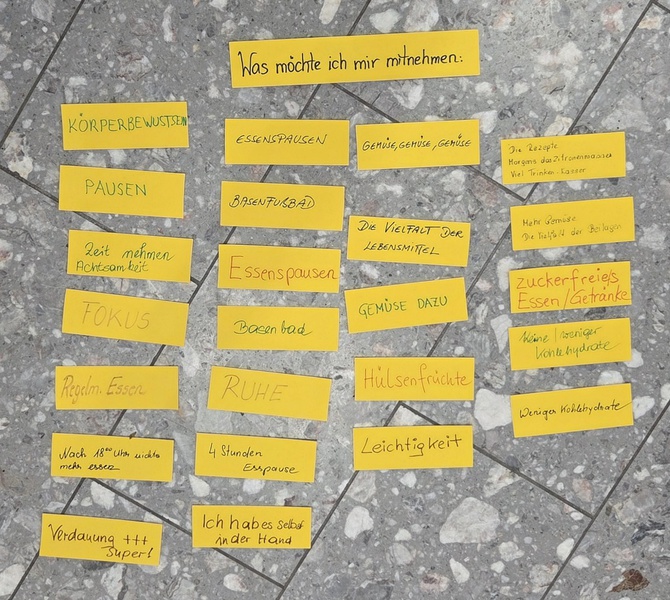 Was möchte ich mir mitnehmen:
KÖRPERBEWUSTSEIN
PAUSEN
Zeit nehmen
Achtsamkeit
FOKUS
Regelm. Essen
Nach 18⁰⁰ Uhr nichts
mehr essen
Verdauung +++
Super!
ESSENSPAUSEN
BASENFUßBAD
Essenspausen
Basenbad
RUHE
4 Stunden
Esspause
Ich habe selbst
in der Hand
GEMÜSE, GEMÜSE, GEMÜSE
DIE VIELFALT DER
LEBENSMITTEL
GEMÜSE DAZU
Hülsenfrüchte
Leichtigkeit
Die Rezepte
Morgens das Zitronenwasser
Viel Trinken
Mehr Gemüse
Die Vielfalt der Beilagen
zuckerfreie/s
Essen/Getränke
Keine/weniger
Kohlehydrate
Weniger Kohlehydrate